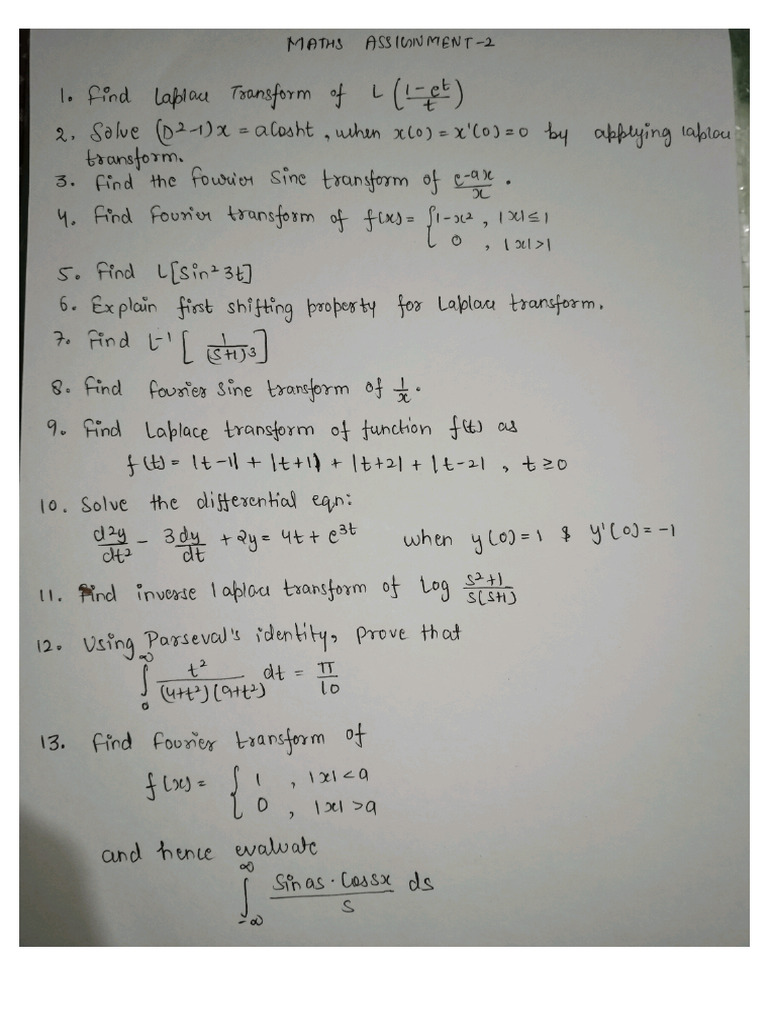 MATHS ASSIGNMENT-2
1. Find Laplau Transform of L (1-et/t)
2. Solve (D²-1)x = aCosht, when x(0) = x'(0) = 0 by applying laplau
transform.
3. Find the fourier Sine transform of e-ax/x .
4. Find Fourier transform of f(x) = { 1-x² , |x| ≤ 1
0 , |x| > 1
5. Find L[Sin² 3t]
6. Explain first shifting property for Laplau transform.
7. Find L-¹ [ 1/(S+1)3 ]
8. Find fourier Sine transform of 1/x .
9. Find Laplace transform of function f(t) as
f(t) = |t-1| + |t+1| + |t+2| + |t-2| , t ≥ 0
10. Solve the differential eqn:
d²y/dt² - 3dy/dt + 2y = 4t + e3t when y(0) = 1 & y'(0) = -1
11. Find inverse laplau transform of Log S²+1/S(S+1)
12. Using Parseval's identity, prove that
∫0∞ t²/(4+t²)(9+t²) dt = π/10
13. Find Fourier transform of
f(x) = { 1 , |x| < a
0 , |x| > a
and hence evaluate
∫-∞∞ Sinas·Cossx/s ds